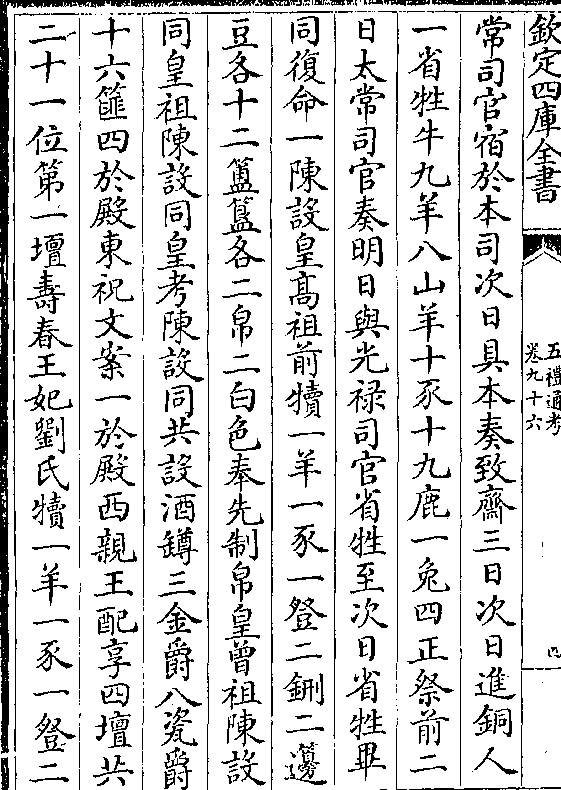 欽定四庫全書
五禮通考
卷九十六
四
常司官宿於本司次日具本奏致齋三日次日進銅人
一省牲牛九羊八山羊十豕十九鹿一兔四正祭前二
日太常司官奏明日與光禄司官省牲至次日省牲畢
同復命一陳設皇髙祖前犢一羊一豕一登二鉶二籩
豆各十二簠簋各二帛二白色奉先制帛皇曾祖陳設
同皇祖陳設同皇考陳設同共設酒罇三金爵八瓷爵
十六篚四於殿東祝文案一於殿西親王配享四壇共
二十一位第一壇壽春王妃劉氏犢一羊一豕一登二